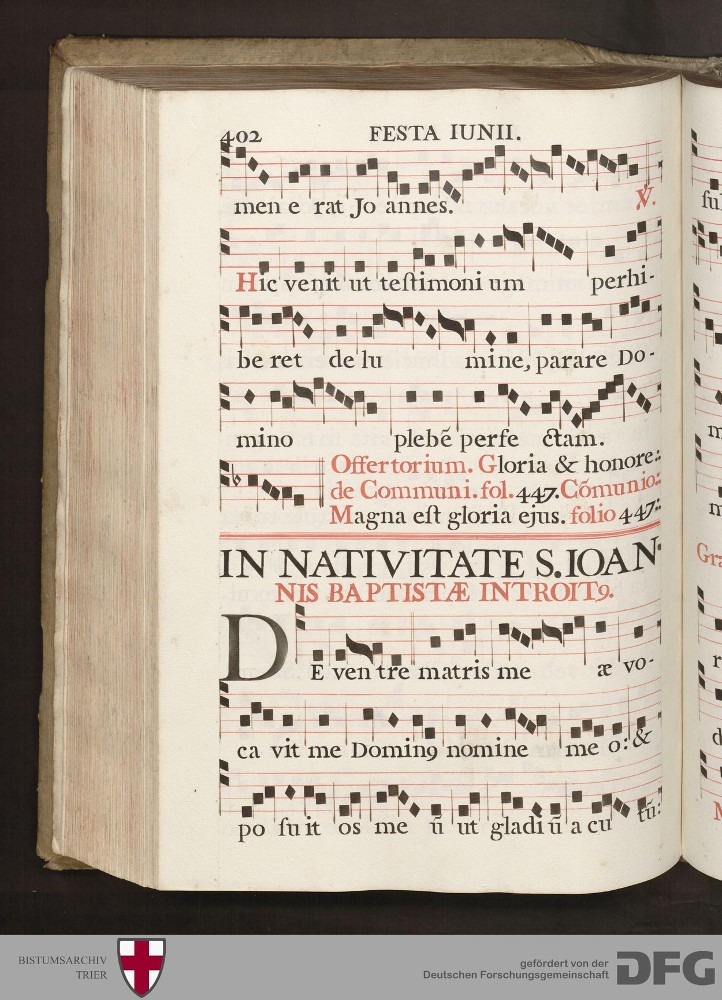 402 FESTA IUNII.
men e rat Jo annes. ℣.
Hic venit ut testimoni um perhi-
be ret de lu mine, parare Do-
mino plebẽ perfe ctam.
Offertorium. Gloria & honore:
de Communi. fol. 447. Cõmunio:
Magna est gloria ejus. folio 447:
IN NATIVITATE S. IOAN-
NIS BAPTISTÆ INTROIT9.
DE ven tre matris me æ vo-
ca vit me Domin9 nomine me o: &
po su it os me ũ ut gladi ũ a cu tũ:
su
m
n
Gra
r
d
BISTUMSARCHIV
TRIER
gefördert von der
Deutschen Forschungsgemeinschaft
DFG